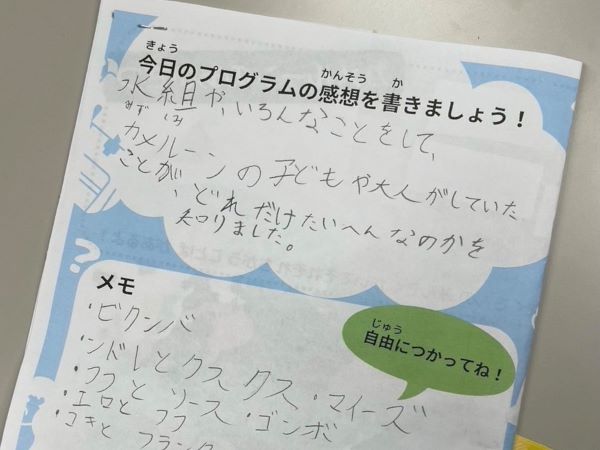 きょう かんそう か
今日のプログラムの感想を書きましょう！
水組や、いろんなことをして、
みず
カメルーンの子どもや大人がしていた
ことが、どれだけたいへんなのかを
知りました。
メモ
じゆう
自由につかってね！
・ビクンバ
・ンドレとクスクス・マイーズ
・フフとソース・ゴンボ
・エロとフフ
・コキとフランタ